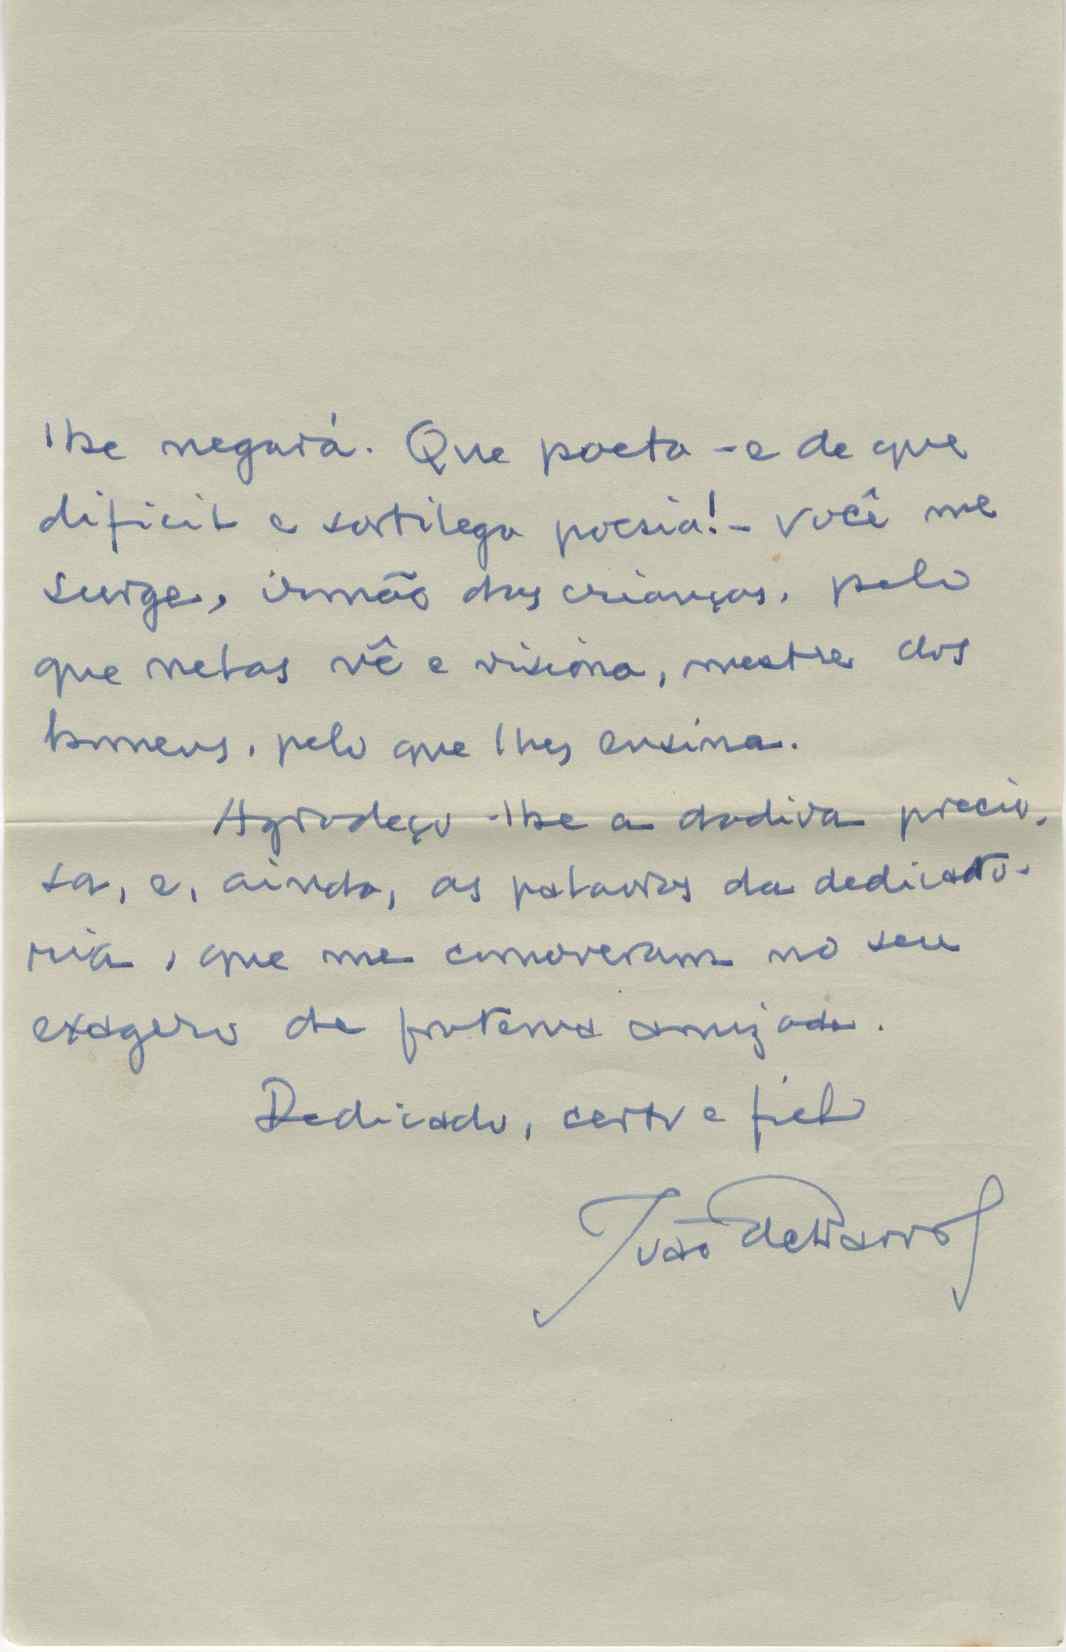 lhe negará. Que poeta - e de que
dificil e sortilega poesia! - você me
surge, irmão das crianças, pelo
que nelas vê e visiona, mestre dos
homens, pelo que lhes ensina.
Agradeço-lhe a dadiva precio-
sa, e, ainda, as palavras da dedicató-
ria, que me comoveram no seu
exagero de fraterna amizade.
Dedicado, certo e fiel
João de Barros